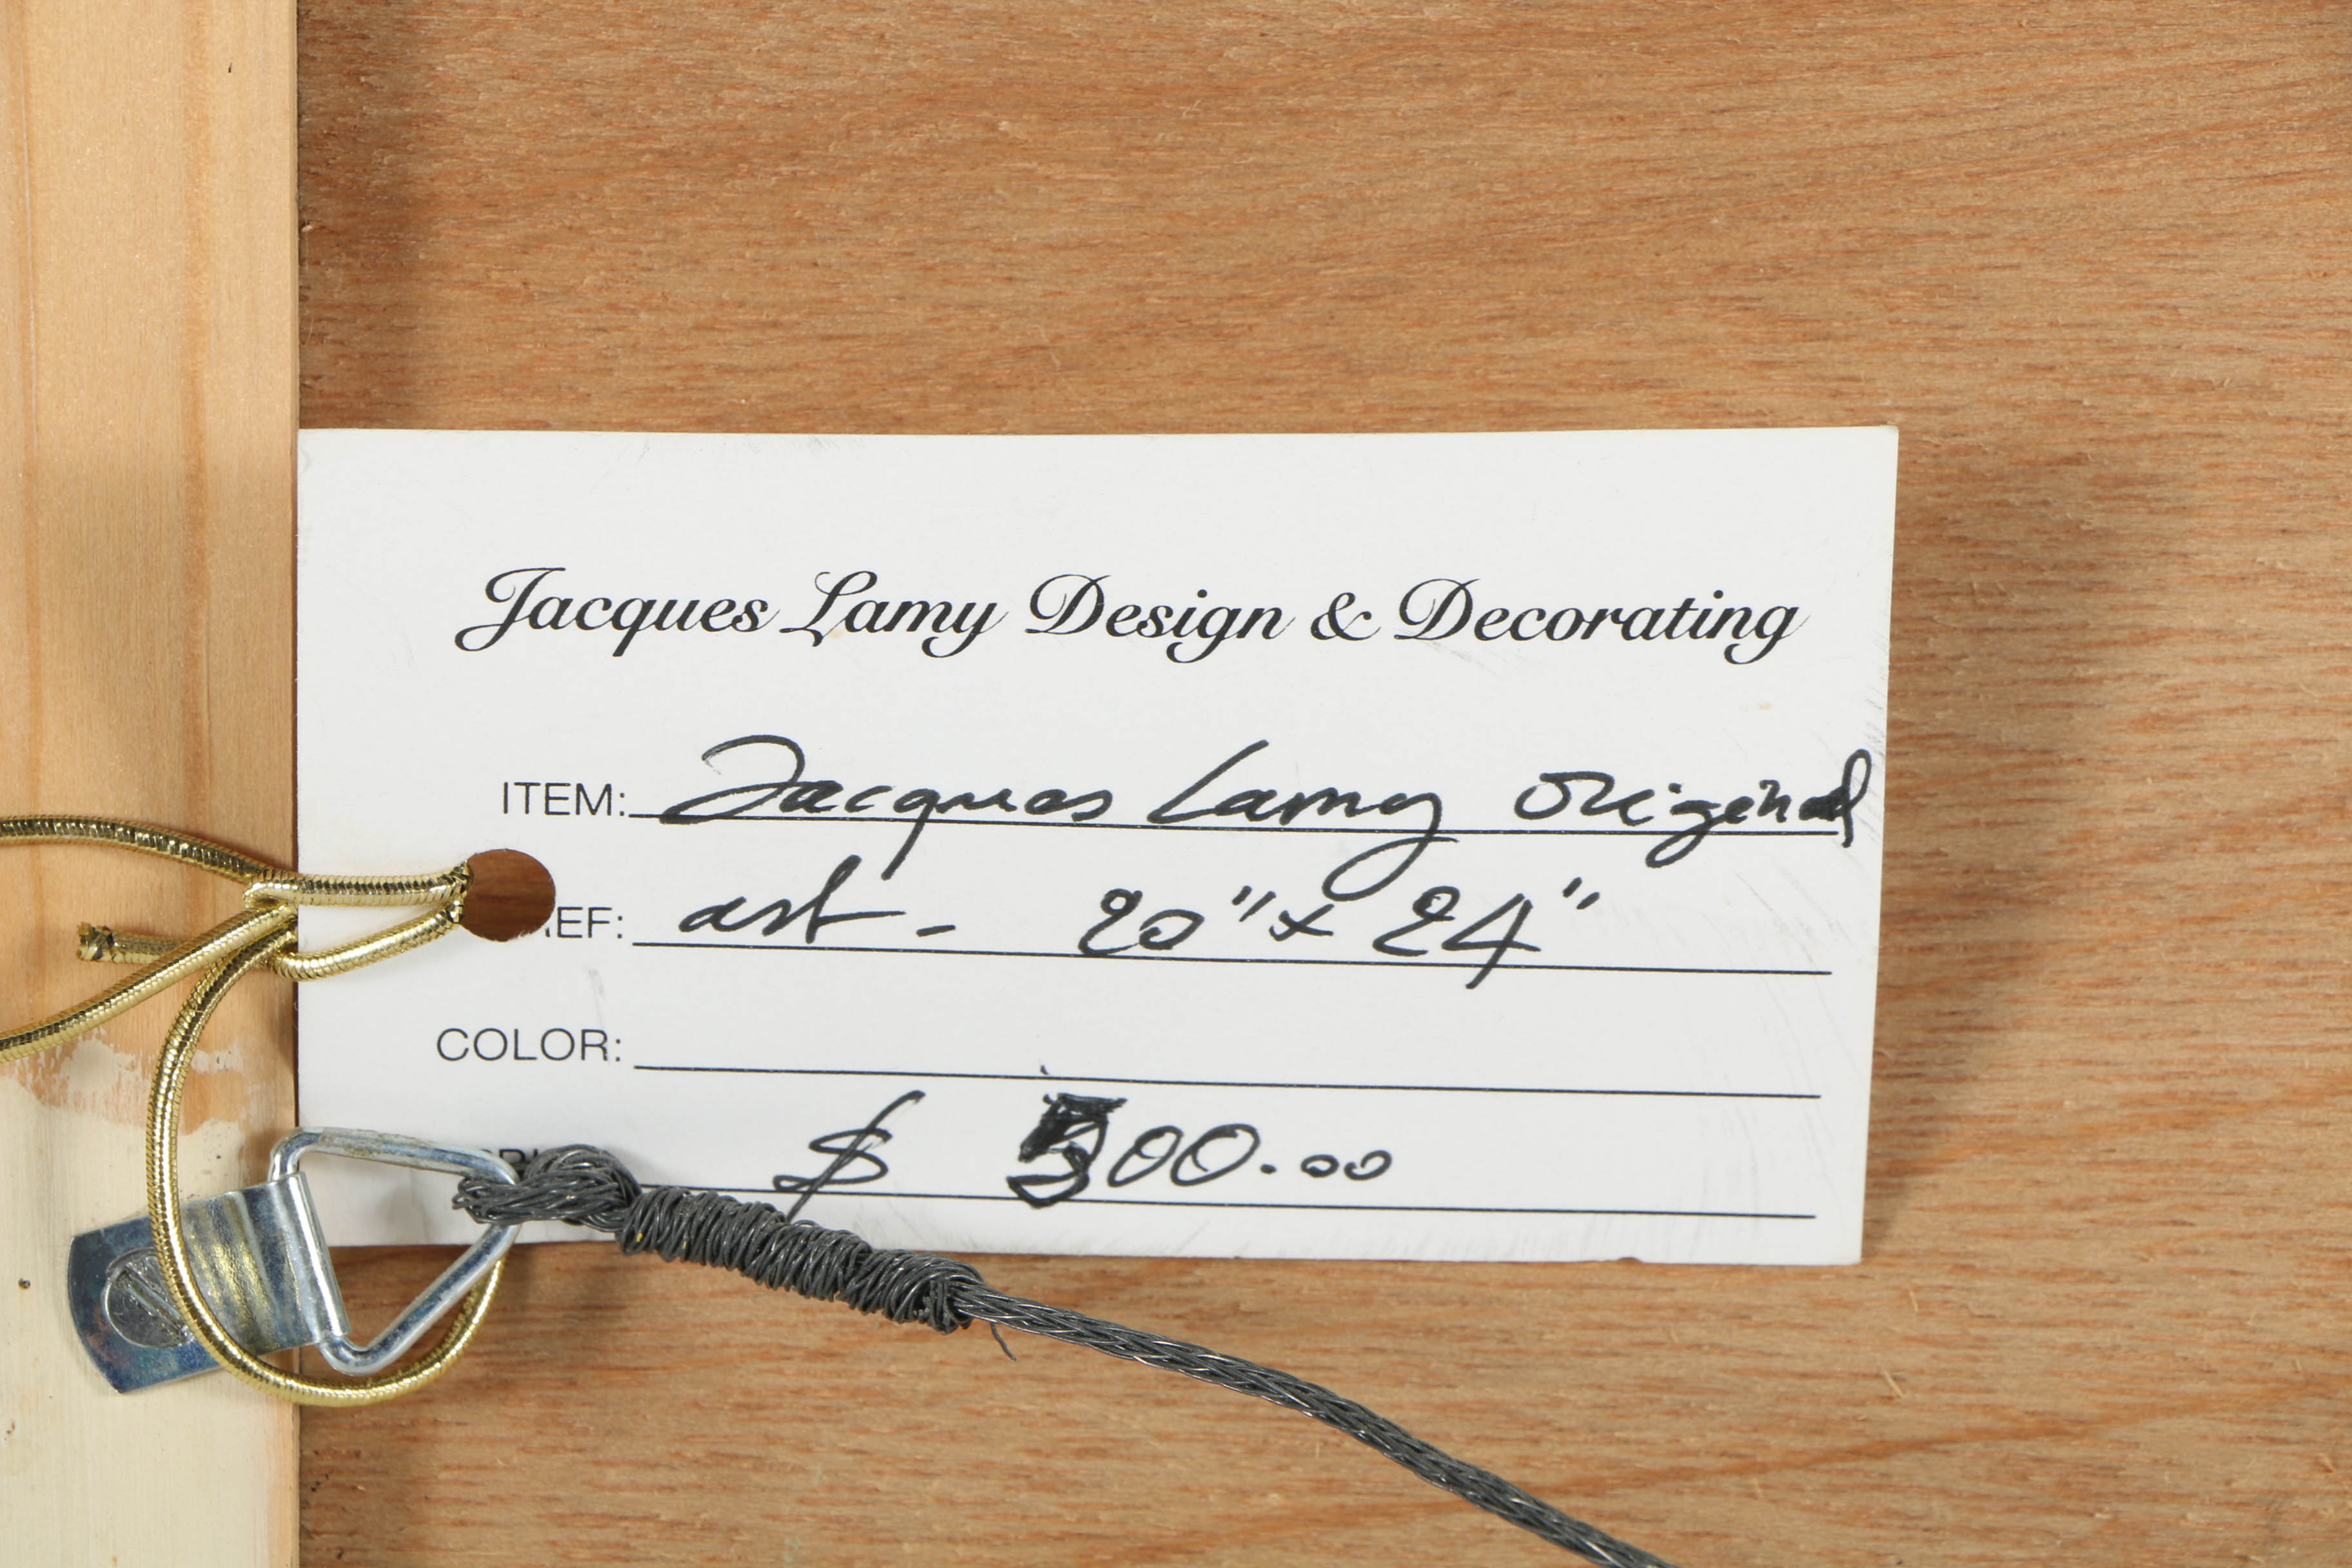 Jacques Lamy Design & Decorating
ITEM: Jacques Lamy Original
EF: art - 20" x 24"
COLOR:
$ 500.00